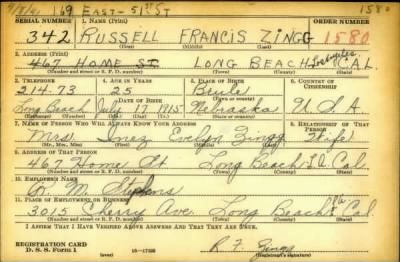 169 EAST - 51ST ST 1580
SERIAL NUMBER 1. NAME (Print) ORDER NUMBER
342 RUSSELL FRANCIS ZINGG 1580
2. ADDRESS (Print)
467 HOME ST LONG BEACH Los Angeles CAL.
(Number and street or R. F. D. number) (Town) (County) (State)
3. TELEPHONE 4. AGE IN YEARS 5. PLACE OF BIRTH 6. COUNTRY OF CITIZENSHIP
214-73 25 Beule
DATE OF BIRTH (Town or county)
Long Beach July 17 1915 Nebraska U S A
(Exchange) (Number) (Mo.) (Day) (Yr.) (State or country)
7. NAME OF PERSON WHO WILL ALWAYS KNOW YOUR ADDRESS 8. RELATIONSHIP OF THAT PERSON
Mrs. Inez Evelyn Zingg Wife
(Mr., Mrs., Miss) (First) (Middle) (Last)
9. ADDRESS OF THAT PERSON
467 Home St Long Beach Cal.
(Number and street or R. F. D. number) (Town) (County) (State)
10. EMPLOYER'S NAME
R. M. Stephens
11. PLACE OF EMPLOYMENT OR BUSINESS
3015 Cherry Ave. Long Beach Cal.
(Number and street or R. F. D. number) (Town) (County) (State)
I AFFIRM THAT I HAVE VERIFIED ABOVE ANSWERS AND THAT THEY ARE TRUE.
REGISTRATION CARD
D. S. S. Form 1 16-17105 R F Zingg
(Registrant's signature)